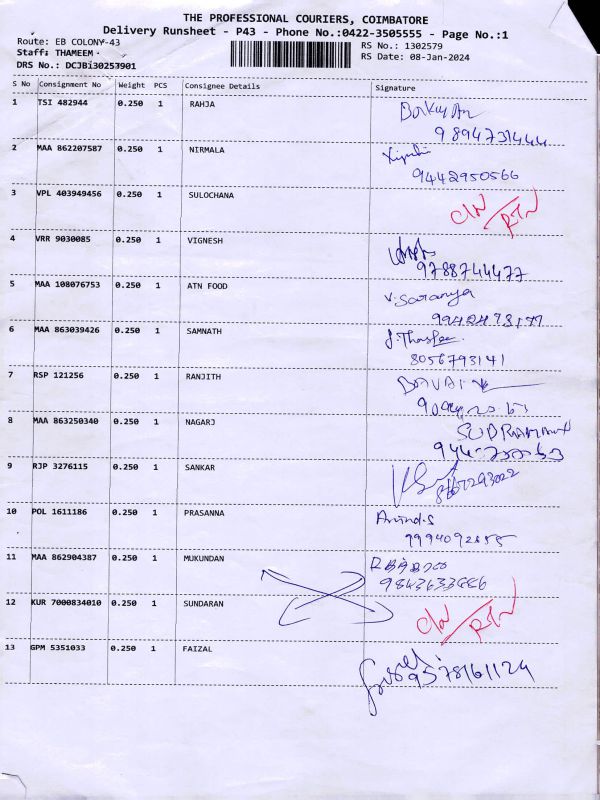 THE PROFESSIONAL COURIERS, COIMBATORE
Delivery Runsheet - P43 - Phone No.:0422-3505555 - Page No.:1
Route: EB COLONY-43
RS No.: 1302579
Staff: THAMEEM
RS Date: 08-Jan-2024
DRS No.: DCJBi30253901
S No Consignment No Weight PCS Consignee Details Signature
1 TSI 482944 0.250 1 RAHJA
9894731444
2 MAA 862207587 0.250 1 NIRMALA
9442950566
3 VPL 403949456 0.250 1 SULOCHANA C/N/RTN
4 VRR 9030085 0.250 1 VIGNESH
9788744477
5 MAA 108076753 0.250 1 ATN FOOD V. Saranya
6 MAA 863039426 0.250 1 SAMNATH
8056793141
7 RSP 121256 0.250 1 RANJITH
8 MAA 863250340 0.250 1 NAGARJ
9 RJP 3276115 0.250 1 SANKAR
10 POL 1611186 0.250 1 PRASANNA Arvind.S
11 MAA 862904387 0.250 1 MUKUNDAN
12 KUR 7000834010 0.250 1 SUNDARAN C/N/RTN
13 GPM 5351033 0.250 1 FAIZAL
9578161124